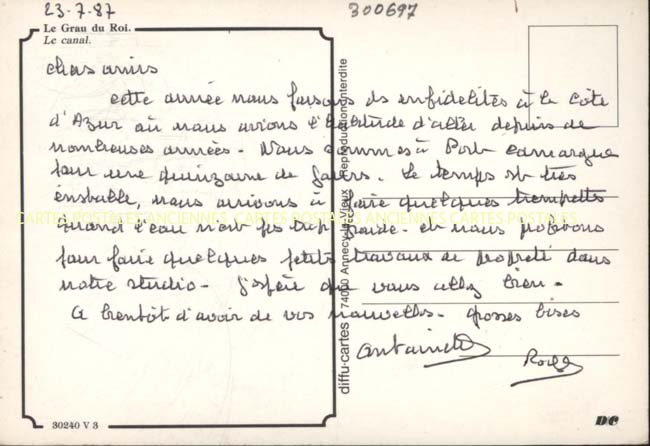 23-7-87
300697
Le Grau du Roi.
Le canal.
chers amis
cette année nous faisons ds enfidelités à la Côte
d'Azur où nous avions l'habitude d'aller depuis de
nombreuses années - Nous sommes à Port camargue
pour une quinzaine de jours. Le temps st très
instable, nous arrivons à faire quelques trempettes
quand l'eau n'est pas trop froide - et nous profitons
pour faire quelques petits travaux de propreté dans
notre studio - j'espère que vous allez bien -
A bientôt d'avoir de vos nouvelles - grosses bises
Antoinette
CARTES POSTALES ANCIENNES CARTES POSTALES ANCIENNES CARTES POSTALES
diffu-cartes 74000 Annecy-le-Vieux Reproduction interdite
30240 V 3
DC